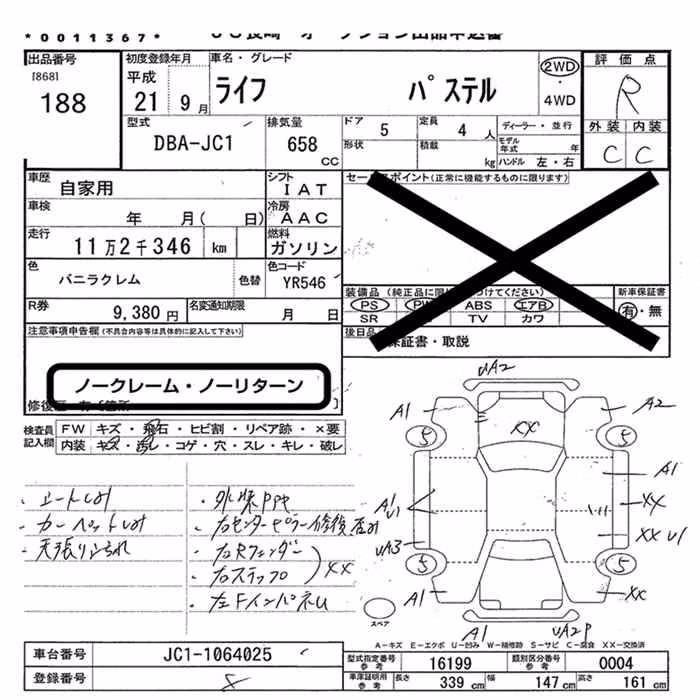 *0011367*
出品番号
[868]
188
初度登録年月
平成
21 9月
車名・グレード
ライフ パステル
2WD
・
4WD
評価点
R
外装 内装
C C
型式
DBA-JC1
排気量
658
CC
ドア
5
定員
4人
形状
積載
kg
ディーラー・並行
モデル年式 年
ハンドル 左・右
車歴
自家用
シフト
IAT
車検
年 月( 日)
冷房
AAC
走行
11万2千346 km
燃料
ガソリン
色
バニラクレム
色替
色コード
YR546
R券
9,380円
名変通知期限
月 日
セールスポイント(正常に機能するものに限ります)
装備品
PS PW ABS エアB
SR TV カワ
新車保証書
有・無
後日品
保証書・取説
注意事項申告欄(不具合内容等は具体的に記入して下さい)
ノークレーム・ノーリターン
検査員
記入欄
FW キズ・飛石・ヒビ割・リペア跡・×要
内装 キズ・汚レ・コゲ・穴・スレ・キレ・破レ
・シートしみ
・カーペットしみ
・外装PPt
・右センターピラー修復歴有り
・右Rフェンダー
・右ステップ
XX
・左FインパネU
UA2
A1 A2
XX
5 5
A1
A1
U1
XX
UA3
XX U1
5 5
A1 XX
A1 UA2P
スペア
A-キズ E-エクボ U-凹み W-補修跡 S-サビ C-腐食 XX-交換済
車台番号
JC1-1064025
登録番号
型式指定番号
参考
16199
類別区分番号
参考
0004
車庫証明用
参考
長さ
339 cm
幅
147 cm
高さ
161 cm